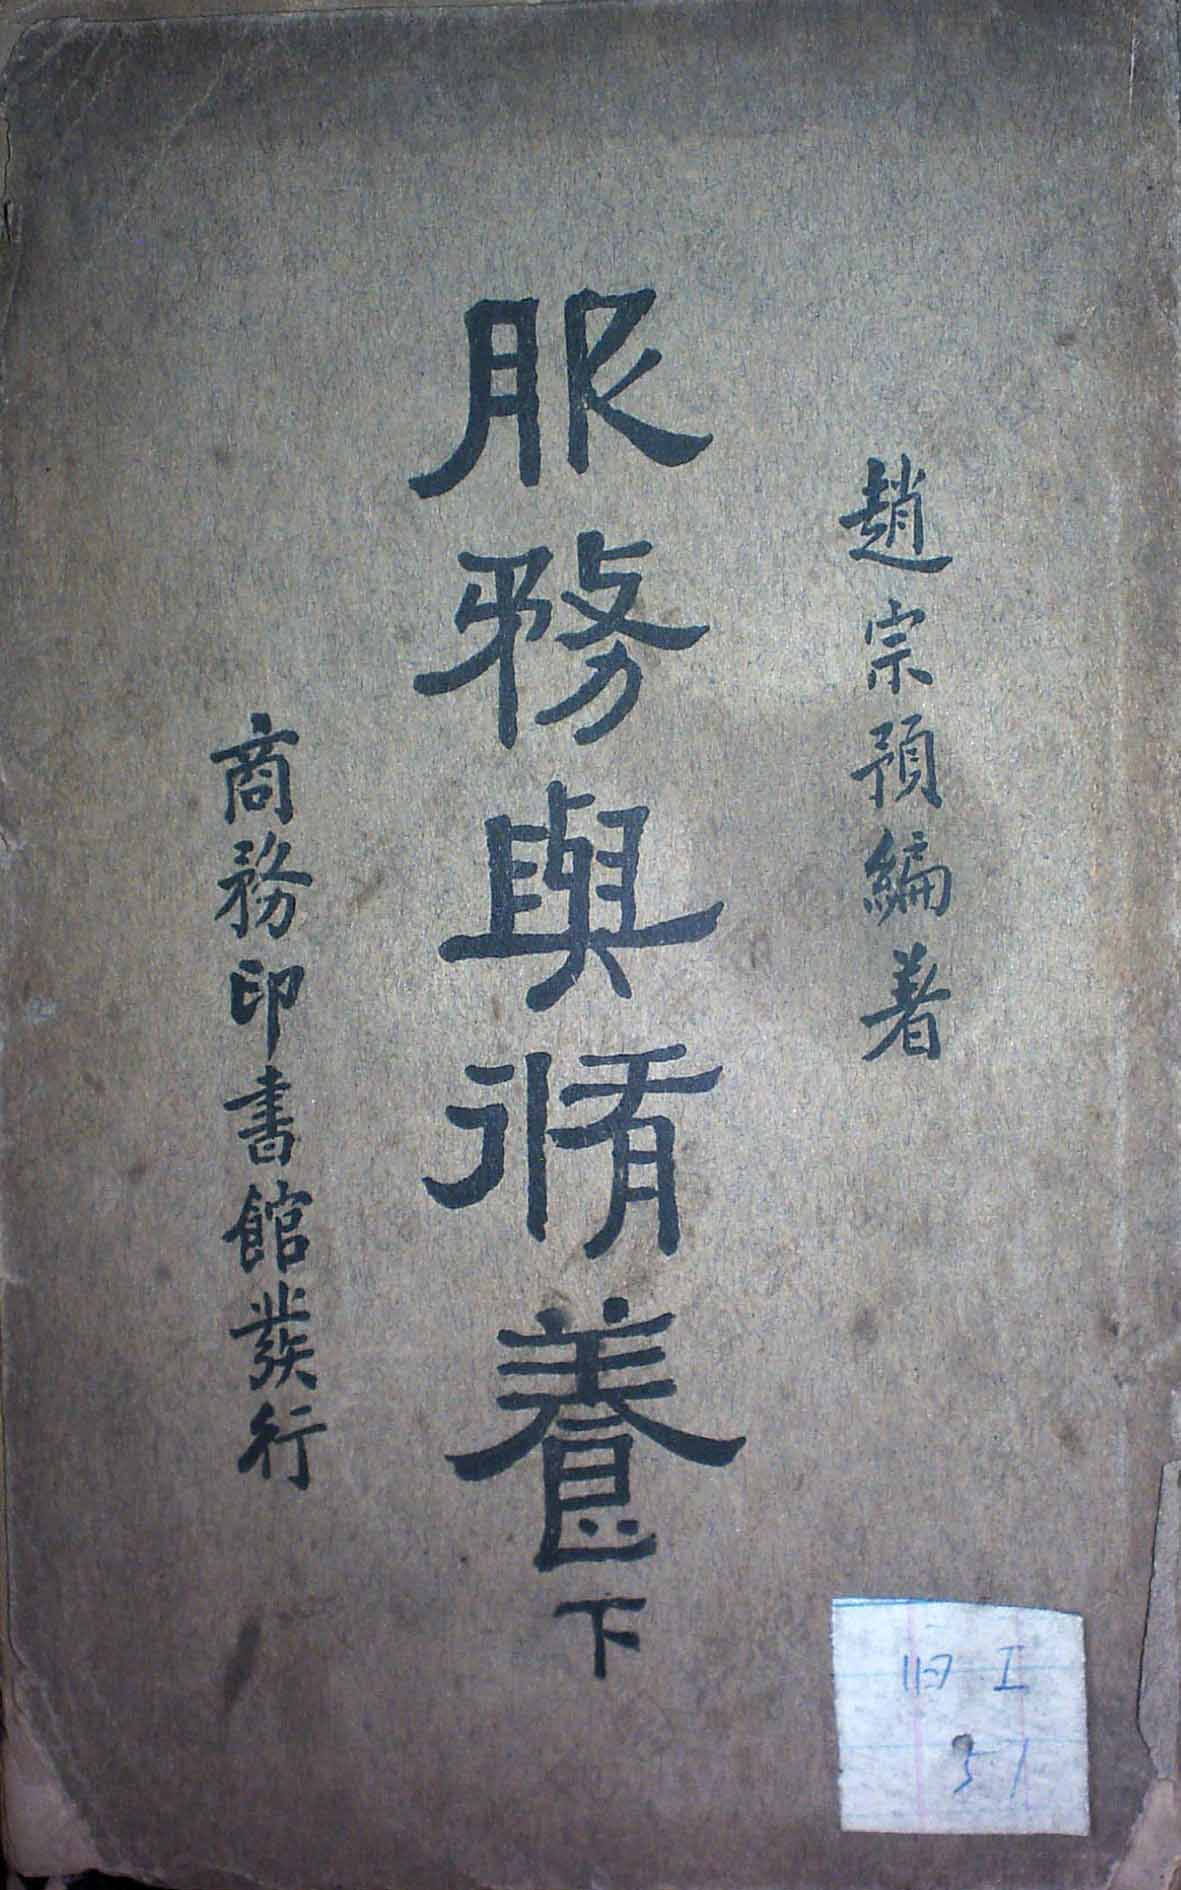 趙宗預編著
服務與脩養下
商務印書館發行
旧工
51